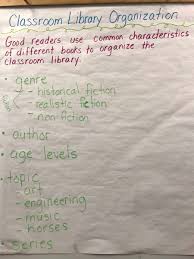 Classroom Library Organization
Good readers use common characteristics
of different books to organize the
classroom library.
• genre
- historical fiction
- realistic fiction
- non-fiction
• author
• age levels
• topic
- art
- engineering
- music
- horses
• series